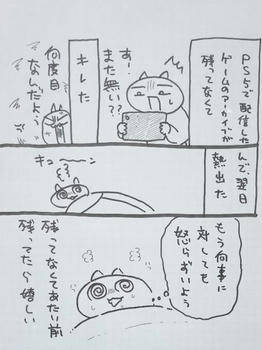 PS5で配信した
ゲームのアーカイブが
残ってなくて
あー
また無い??
キレた
何度目
なんだよう
んで、翌日
熱出た
キューーン
もう何事に
対しても
怒らずいよう
残ってなくてあたい前
残ってたら嬉しい